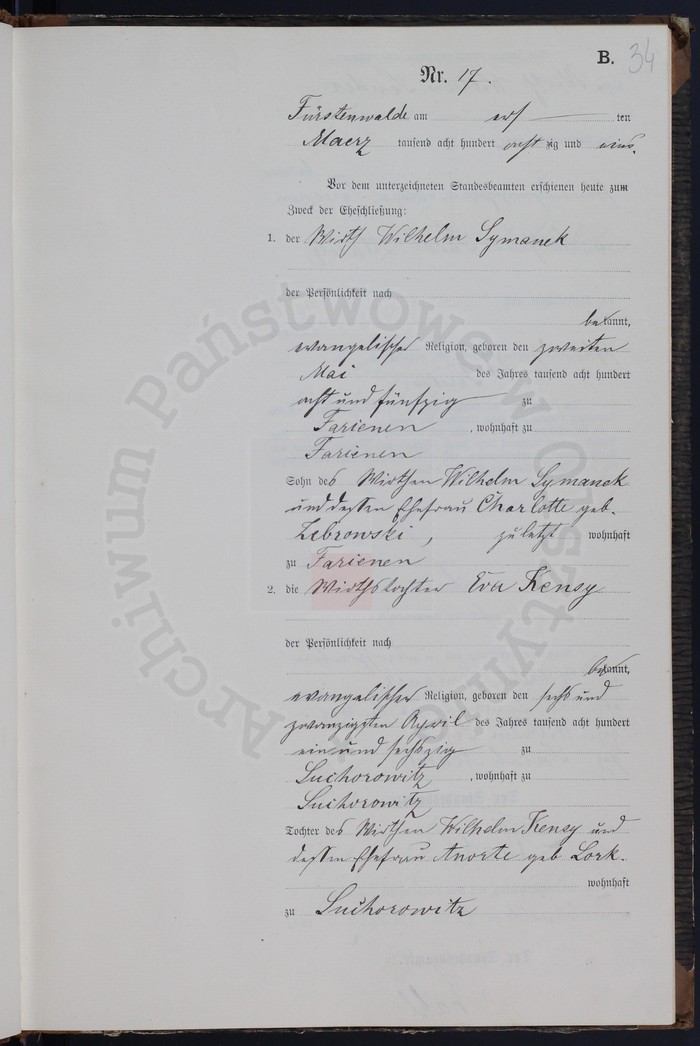 B. 34
Nr. 17.
Fürstenwalde am ersten
Maerz tausend acht hundert achtzig und eins.
Vor dem unterzeichneten Standesbeamten erschienen heute zum
Zweck der Eheschließung:
1. der Wirth Wilhelm Symanek
der Persönlichkeit nach
bekannt,
evangelischer Religion, geboren den zweiten
Mai des Jahres tausend acht hundert
acht und fünfzig zu
Farienen, wohnhaft zu
Farienen
Sohn des Wirthen Wilhelm Symanek
und dessen Ehefrau Charlotte geb.
Zebrowski, zuletzt wohnhaft
zu Farienen
2. die Wirthstochter Eva Kensy
der Persönlichkeit nach
bekannt,
evangelischer Religion, geboren den sechs und
zwanzigsten April des Jahres tausend acht hundert
ein und sechszig zu
Suchorowitz, wohnhaft zu
Suchorowitz
Tochter des Wirthen Wilhelm Kensy und
dessen Ehefrau Anorte geb Lork.
wohnhaft
zu Suchorowitz
Archiwum Państwowe w Olsztynie